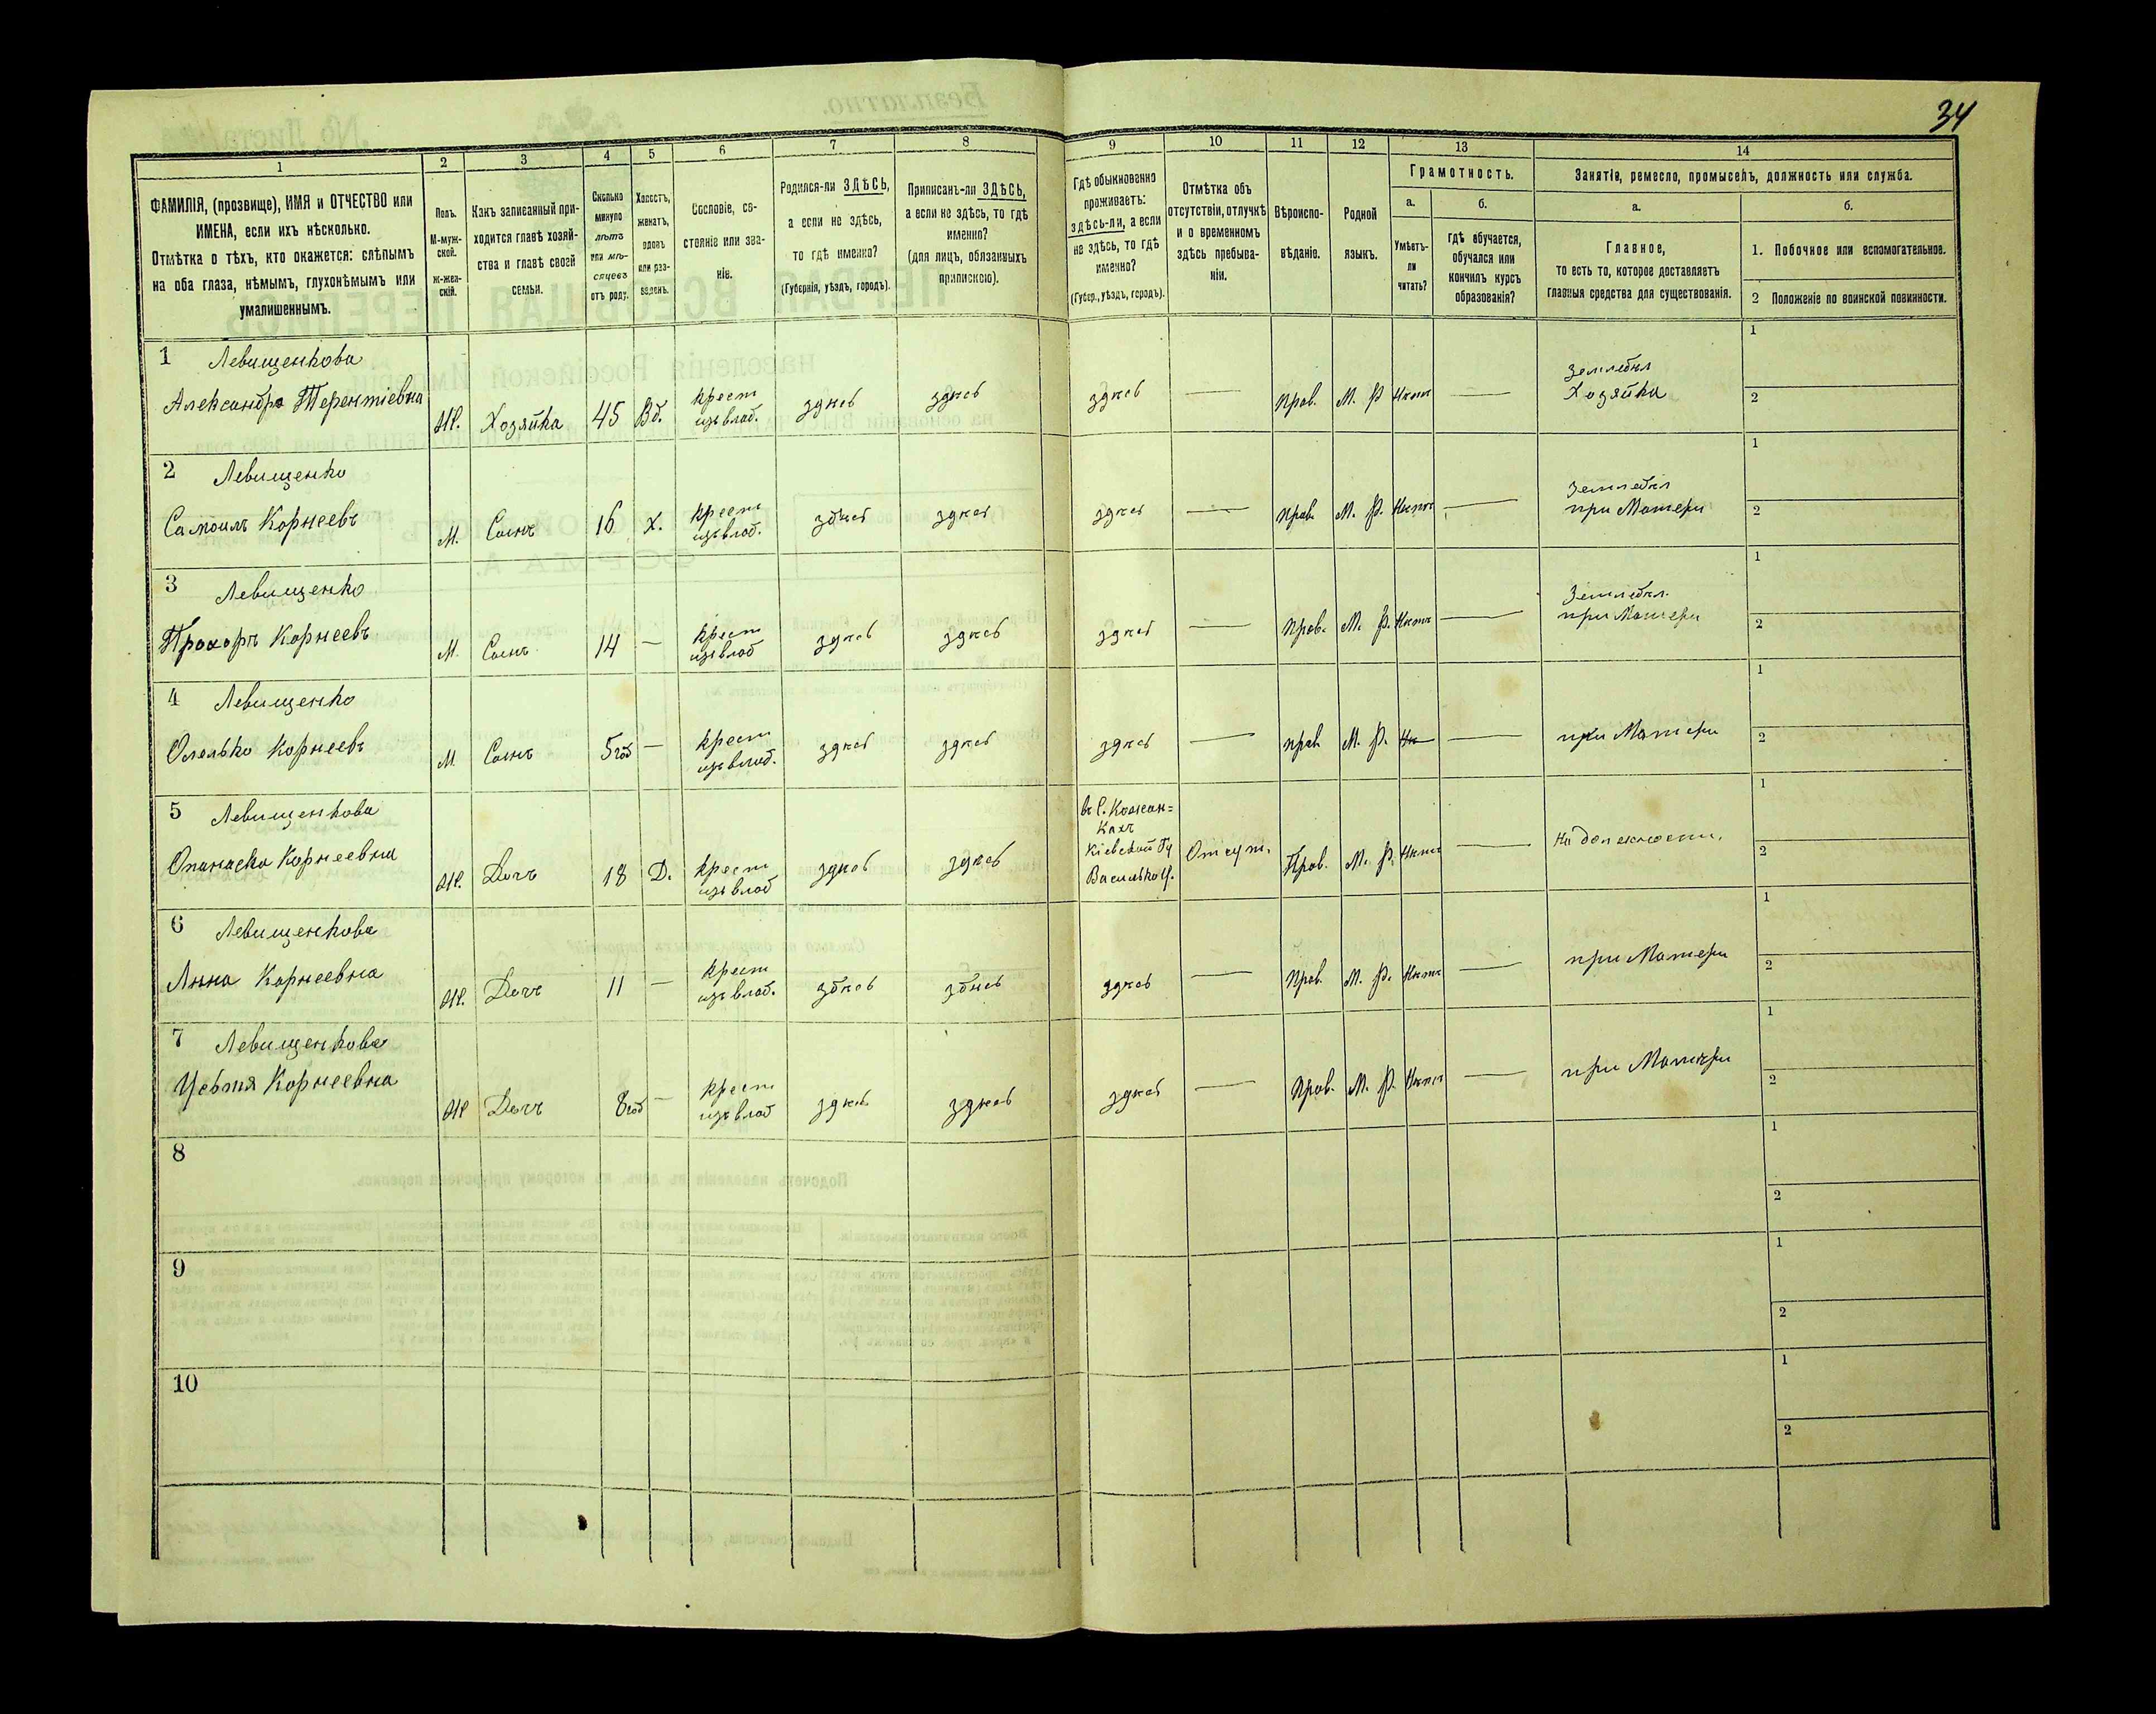 34
1
2
3
4
5
6
7
8
9
10
11
12
13
14
ФАМИЛІЯ, (прозвище), ИМЯ и ОТЧЕСТВО или
ИМЕНА, если ихъ нѣсколько.
Отмѣтка о тѣхъ, кто окажется: слѣпымъ
на оба глаза, нѣмымъ, глухонѣмымъ или
умалишеннымъ.
Полъ.
М-муж-
ской.
Ж-жен-
скій.
Какъ записанный при-
ходится главѣ хозяй-
ства и главѣ своей
семьи.
Сколько
минуло
лѣтъ
или мѣ-
сяцевъ
отъ роду.
Холостъ,
женатъ,
вдовъ
или раз-
веденъ.
Сословіе, со-
стояніе или зва-
ніе.
Родился-ли ЗДѢСЬ,
а если не здѣсь,
то гдѣ именно?
(Губернія, уѣздъ, городъ).
Приписанъ-ли ЗДѢСЬ,
а если не здѣсь, то гдѣ
именно?
(для лицъ, обязанныхъ
припискою).
Гдѣ обыкновенно
проживаетъ:
здѣсь-ли, а если
не здѣсь, то гдѣ
именно?
(Губер., уѣздъ, городъ).
Отмѣтка объ
отсутствіи, отлучкѣ
и о временномъ
здѣсь пребыва-
ніи.
Вѣроиспо-
вѣданіе.
Родной
языкъ.
Грамотность.
а.
Умѣетъ-
ли
читать?
б.
гдѣ обучается,
обучался или
кончилъ курсъ
образованія?
Занятіе, ремесло, промыселъ, должность или служба.
а.
Главное,
то есть то, которое доставляетъ
главныя средства для существованія.
б.
1. Побочное или вспомогательное.
2 Положеніе по воинской повинности.
1 Левищенкова
Александра Терентіевна
Ж. Хозяйка 45 Вд. крест изъ влад. здѣсь здѣсь здѣсь — прав. М. Р. Нѣтъ — Земледѣл Хозяйка
1
2
2 Левищенко
Самоилъ Корнеевъ
М. Сынъ 16 Х. крест изъ влад. здѣсь здѣсь здѣсь — прав. М. Р. Нѣтъ — Земледѣл при Матери
1
2
3 Левищенко
Прохоръ Корнеевъ
М. Сынъ 14 — крест изъ влад здѣсь здѣсь здѣсь — прав. М. Р. Нѣтъ — Земледѣл. при Матери
1
2
4 Левищенко
Олелько Корнеевъ
М. Сынъ 5 год — крест изъ влад. здѣсь здѣсь здѣсь — прав. М. Р. — при Матери
1
2
5 Левищенкова
Опанаска Корнеевна
Ж. Дочъ 18 Д. крест изъ влад здѣсь здѣсь
в С. Кожан=
кахъ
Кіевской Гу
Васильк. У.
Отсут. Прав. М. Р. Нѣтъ — На должности.
1
2
6 Левищенкова
Анна Корнеевна
Ж. Дочъ 11 — крест изъ влад. здѣсь здѣсь здѣсь — прав. М. Р. Нѣтъ — при Матери
1
2
7 Левищенкова
Корнеевна
Ж Дочъ 8 год — крест изъ влад здѣсь здѣсь здѣсь — прав. М. Р. Нѣтъ — при Матери
1
2
8
1
2
9
1
2
10
1
2